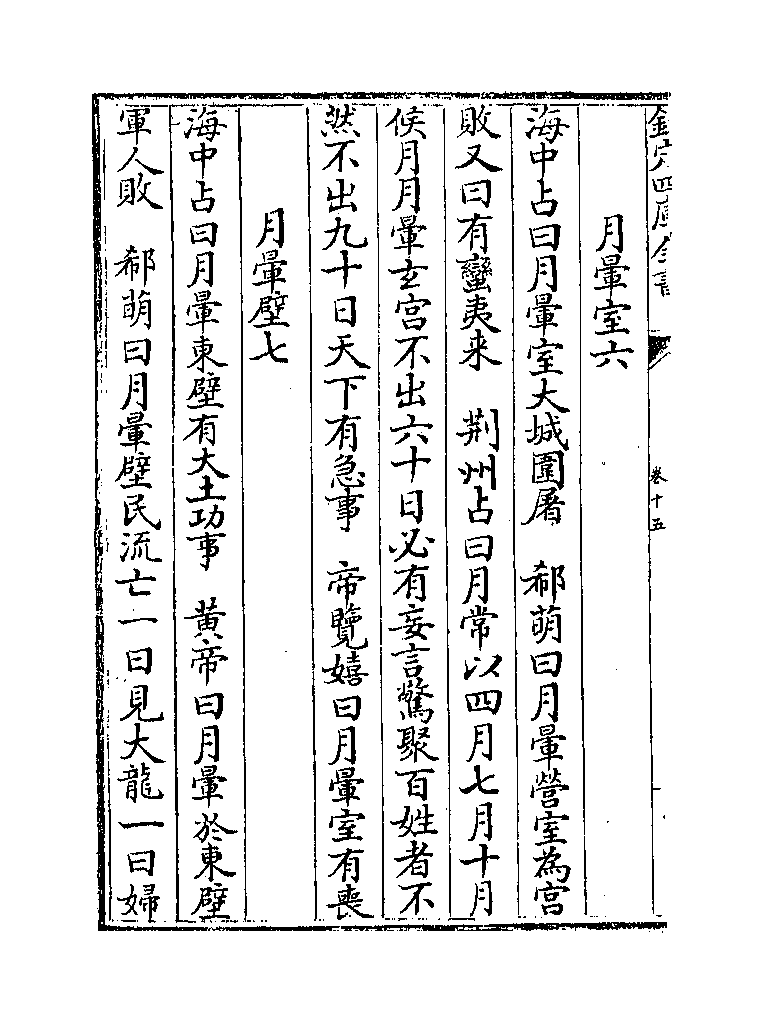 欽定四庫全書
卷十五
月暈室六
海中占曰月暈室大城圍屠　郗萌曰月暈營室為宫
敗又曰有蠻夷來　荆州占曰月常以四月七月十月
候月月暈玄宫不出六十日必有妄言驚聚百姓者不
然不出九十日天下有急事　帝覽嬉曰月暈室有喪
月暈壁七
海中占曰月暈東壁有大土功事　黄帝曰月暈於東壁
軍人敗　郗萌曰月暈壁民流亡一曰見大龍一曰婦